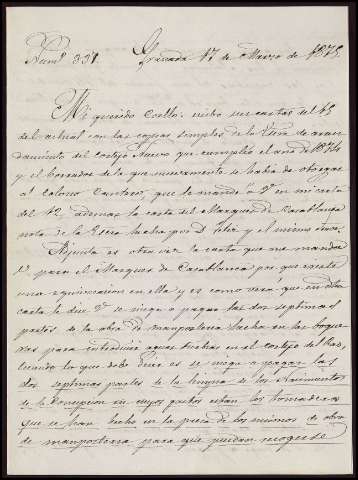 Num.º 331. Granada 17 de Marzo de 1875.
Mi querido Coello: recibo sus cartas del 15
del actual con las copias simples de la Escra de arren
damiento del cortijo Nuevo que cumplió el año de 1874
y el borrador de la que nuevamente se había de otorgar
al colono Cantero, que le mandé a V. en mi carta
del 12, además la carta del Marques de Casablanca
nota de la Escra hecha por D. Felix y el mismo
Adjunta es otra vez la carta que me manda
V. para el Marques de Casablanca por que existe
una equivocacion en ella y es como verá que en dha
carta le dice V. se niega a pagar las dos septimas
partes de la obra de mamposteria hecha en los boque
ras para introducir aguas turbias en el cortijo del
siendo lo que debe decir es se niega a pagar las
dos septimas partes de la limpia de los Nacimientos
de la Concepcion en cuyos gastos estan los tomaderos
que se han hecho en la presa de los mismos de obra
de mamposteria para que puedan recogerse